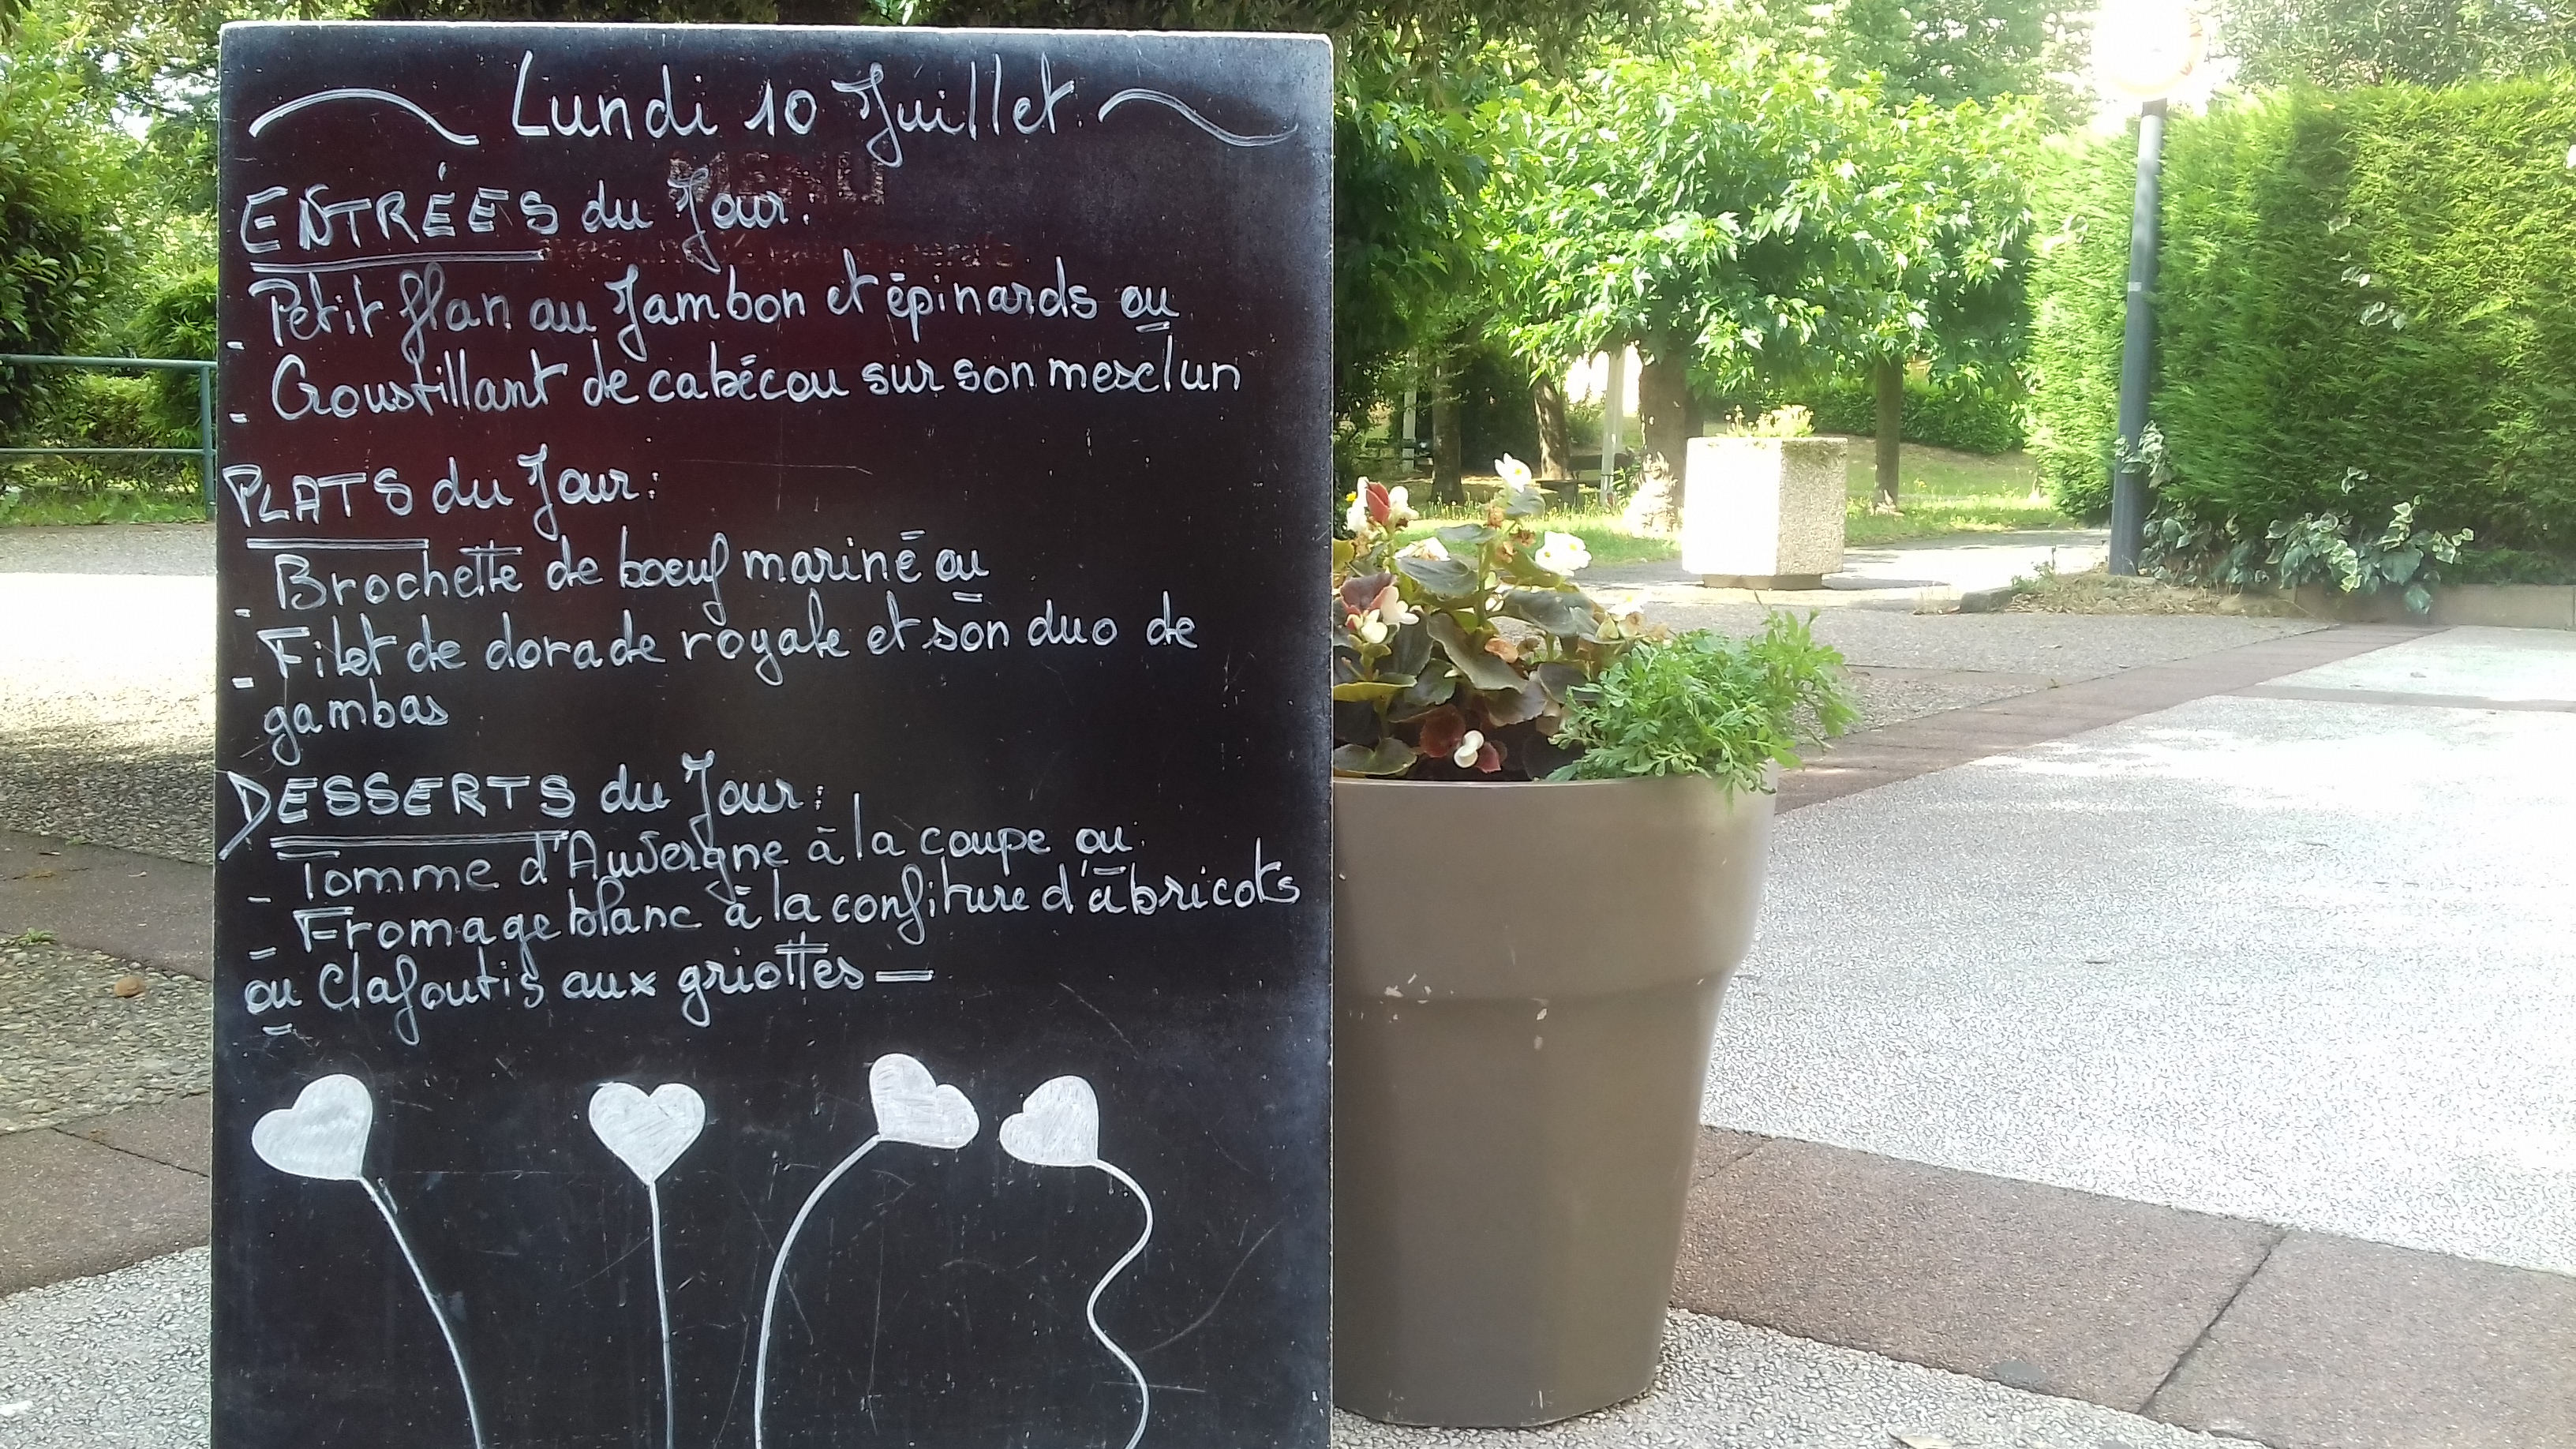 Lundi 10 Juillet
MENU
ENTRÉES du Jour:
- Petit flan au Jambon et épinards ou
- Croustillant de cabécou sur son mesclun
PLATS du Jour:
- Brochette de boeuf mariné ou
- Filet de dorade royale et son duo de
gambas
DESSERTS du Jour:
- Tomme d'Auvergne à la coupe ou
- Fromage blanc à la confiture d'abricots
ou Clafoutis aux griottes —